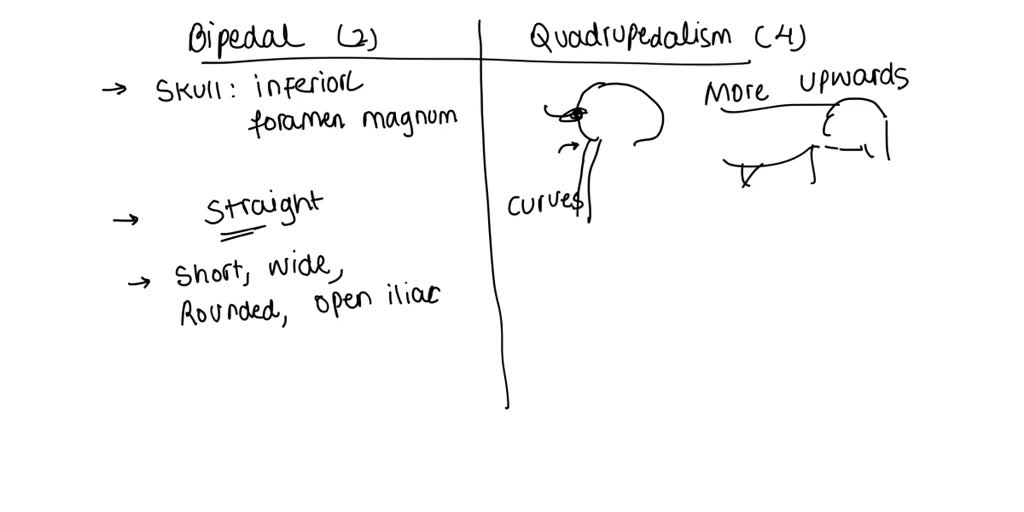 Bipedal (2)
Quadrupedalism (4)
→ Skull: inferior
foramen magnum
More upwards
curves
→ Straight
→ Short, wide,
Rounded, open iliac